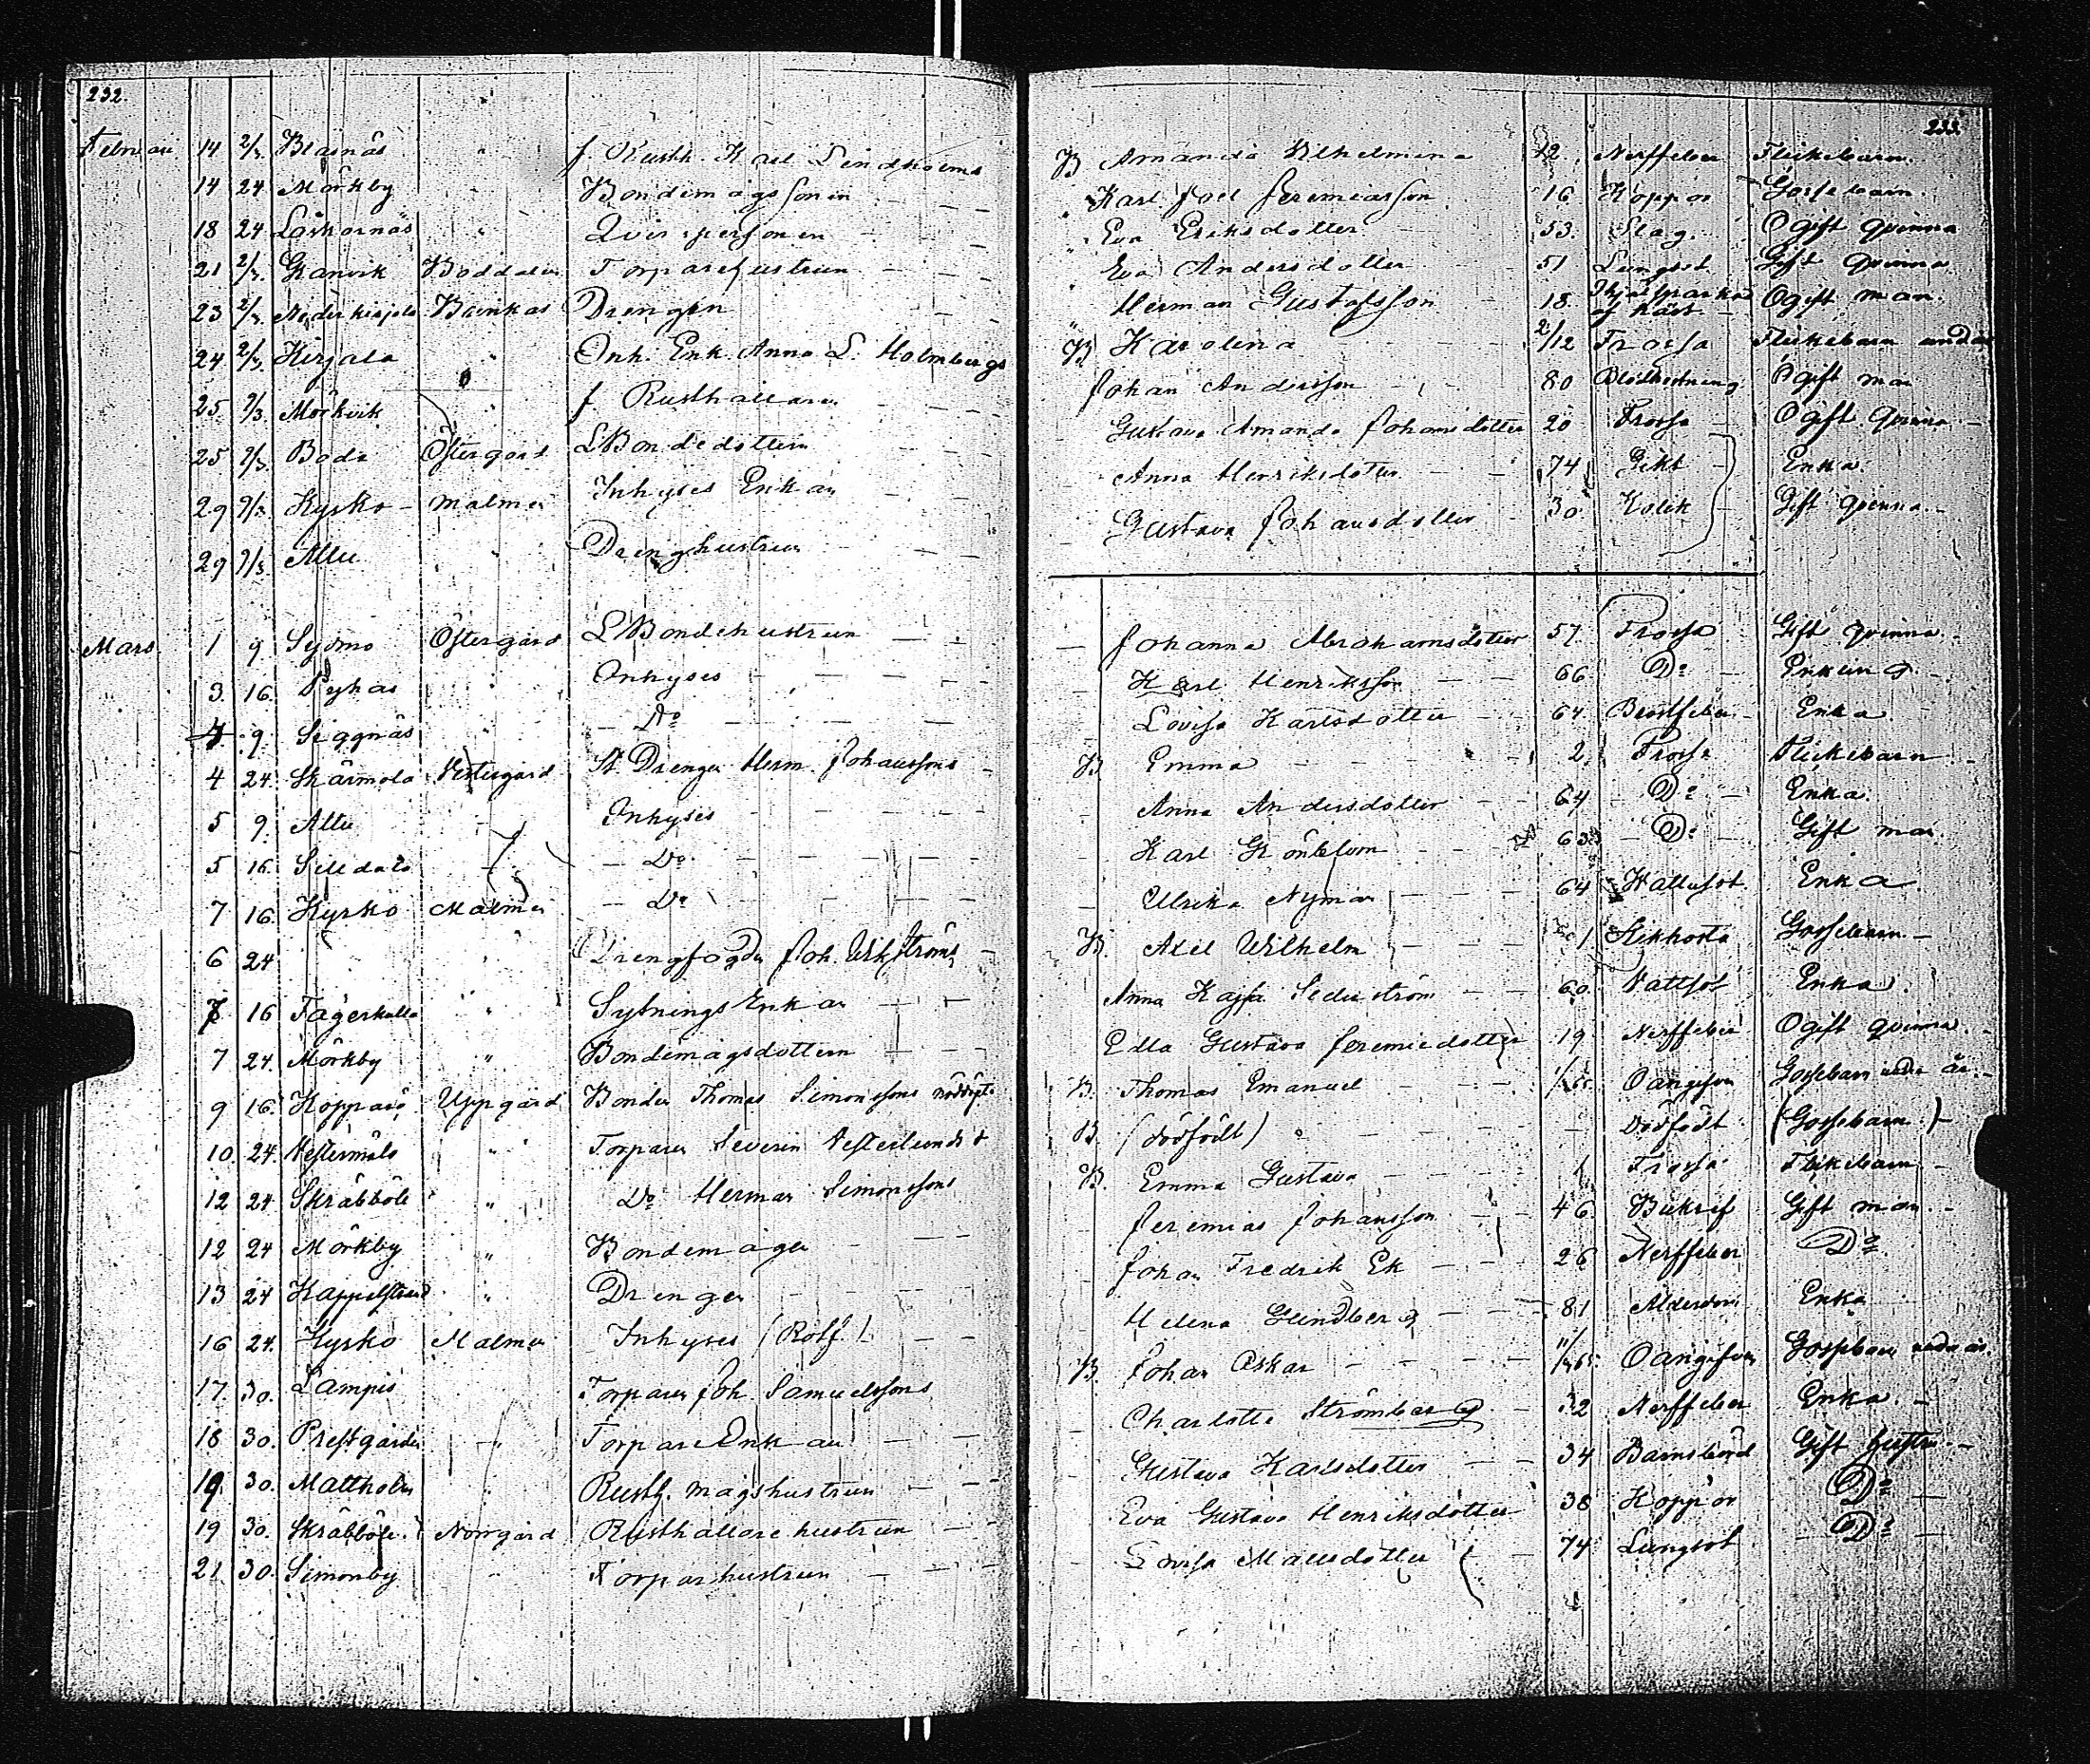 232.
Februari 14 2/3 Blasnäs " f. Rusth. Karl Lindholms
14 24 Mörkby " Bondemågssonen
18 24 Löskärnäs "
21 2/3 Granvik Boddalen Torparehustrun
23 2/3 Drengen
24 2/3 Kirjala " Inh. Enk. Anna L. Holmbergs
25 9/3 Mörkvik " f. Rusthållaren
25 9/3 Boda Östergård LBondedottern
29 9/3 Kyrko Malmen Inhyses Enkan
29 9/3 Attu " Drenghustrun
Mars 1 9 Sydmo Östergård LBondehustrun
3 16 Pyhäs " Inhyses
4 9 Siggnäs " Do
4 24 Skärmola Vestergård St Drengen Herm. Johanssons
5 9 Attu Inhyses
5 16 Sildala Do
7 16 Kyrko Malmen Do
6 24 " Drengfogden Joh. Wikströms
7 16 Fagerkulla " Sytnings Enkan
7 24 Mörkby " Bondemågsdottern
9 16 Kopparö Uppgård Bonden Thomas Simonssons
10 24 Vestermälö " Torparen Severin Vesterlunds
12 24 Skräbböle " Do Herman Simonssons
12 24 Mörkby " Bondemågen
13 24 Kappelstrand " Drengen
16 24 Kyrko Malmen Inhyses (Rotf.)
17 30 Lampis Torparen Joh. Samuelssons
18 30 Prestgården Torpare Enkan
19 30 Mattholm " Rusth. mågshustrun
19 30 Skräbböle Norrgård Rusthållarehustrun
21 30 Simonby " Torparhustrun
233.
B Amanda Wilhelmina 12 Nerffeber Flickebarn
Karl Joel Jeremiasson 16 Koppor Gossebarn
Eva Eriksdotter 53 Slag Ogift Qvinna
Eva Andersdotter 51 Lungsot Gift Qvinna
Herman Gustafsson 18 Ihjälsparkad af häst Ogift man
B Karolina 2/12 Frossa Flickebarn
Johan Andersson 80 man
Gustava Amanda Johansdotter 20 Frossa Ogift Qvinna
Anna Henriksdotter 74 Gikt Enka
Gustava Johansdotter 30 Kolik Gift Qvinna
Johanna Abrahamsdotter 57 Frossa Gift Qvinna
Karl Henriksson 66 Do Enkling
Lovisa Karlsdotter 64 Enka
B Emma 2 Frossa Flickebarn
Anna Andersdotter 64 Do Enka
Karl Grönblom 63 Do Gift man
Ulrika Nyman 64 Vattusot Enka
B. Axel Wilhelm 1 Kikhosta Gossebarn
Anna Kajsa Sederström 60 Vattsot Enka
Edla Gustava Jeremiedotter 19 Nerffeber Ogift Qvinna
B. Thomas Emanuel Oangifven Gossebarn under år
B. (dödfödt) Dödfödt (Gossebarn)
B. Emma Gustava 1 Frossa Flickebarn
Jeremias Johansson 46 Bukref Gift man
Johan Fredrik Ek 26 Nerffeber Do
Helena Lindberg 81 Ålderdom Enka
B Johan Oskar Oangifven Gossebarn under år
Charlotta Strömberg 32 Nerffeber Enka
Gustava Karlsdotter 34 Barnsbörd Gift hustru
Eva Gustava Henriksdotter 38 Koppor Do
Lovisa Mansdotter 74 Lungsot Do